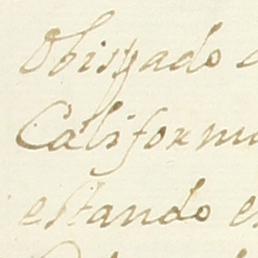 Obispado
Californ
estando